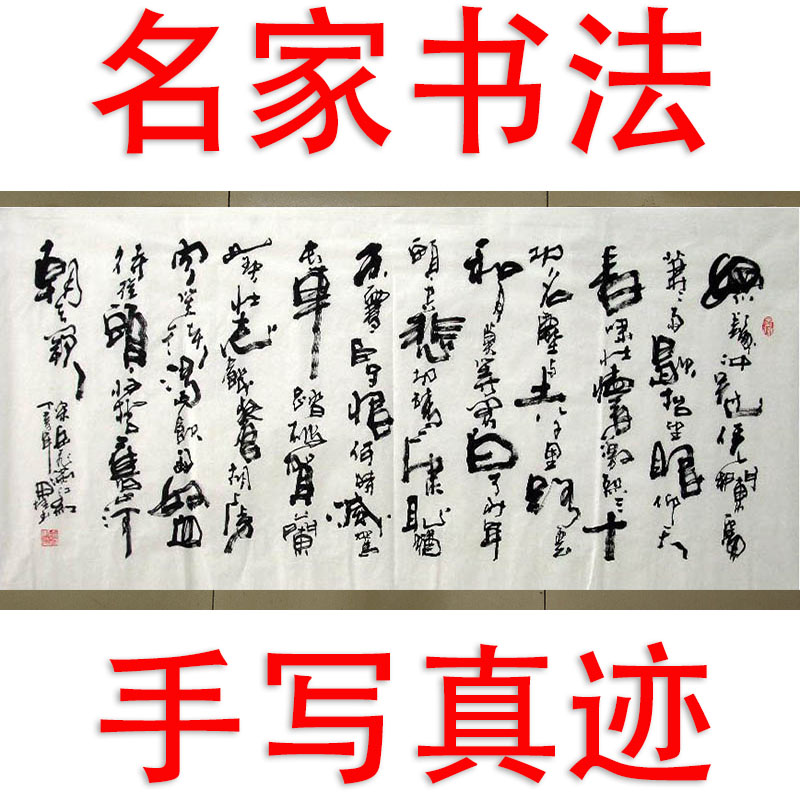 名家书法
怒髮冲冠凭闌處
萧萧雨歇抬望眼仰天
长啸壮怀激烈三十
功名塵与土八千里路云
和月莫等闲白了少年
頭空悲切靖康耻犹
未雪臣子恨何时滅駕
长車踏破賀蘭
山缺壮志饑餐胡虜
肉笑谈渴飲匈奴血
待從頭收拾舊山河
朝天闕
宋岳飞满江红
丁亥年
手写真迹